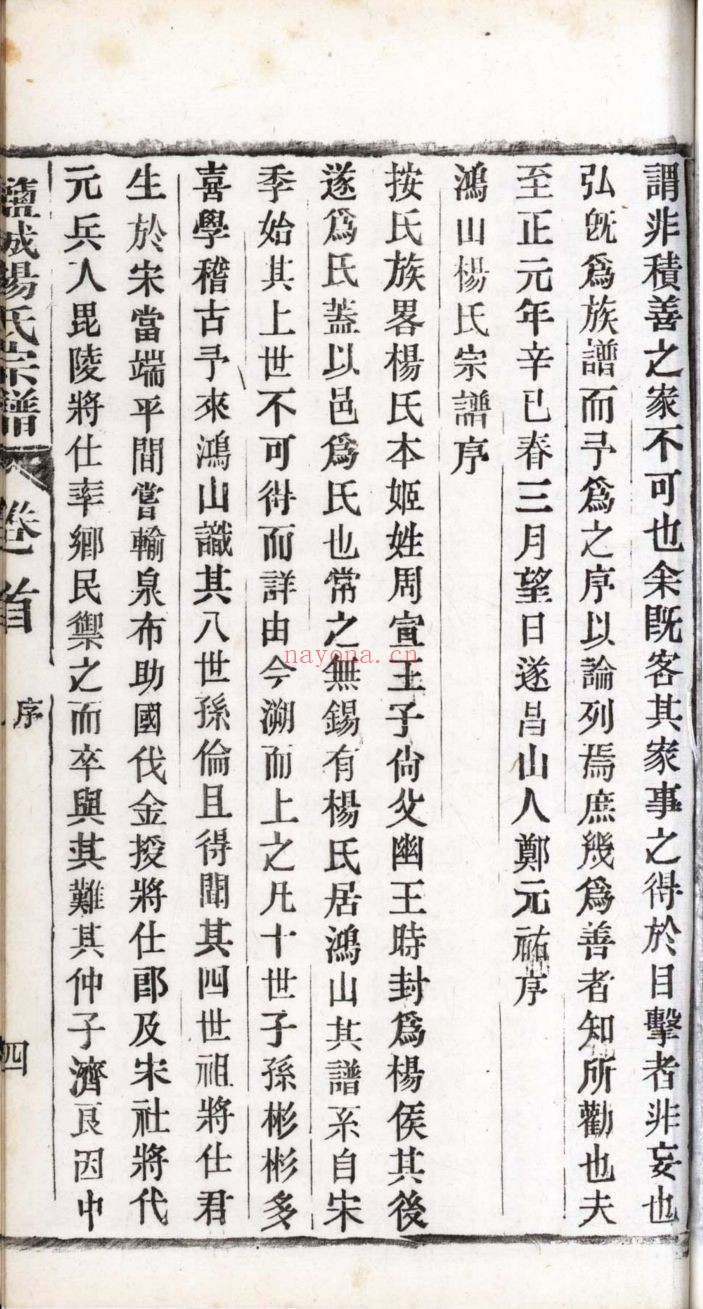 謂非積善之家不可也余既客其家事之得於目擊者非妄也
弘旣爲族譜而予爲之序以論列焉庶幾爲善者知所勸也夫
至正元年辛巳春三月望日遂昌山人鄭元祐序
鴻山楊氏宗譜序
按氏族畧楊氏本姬姓周宣王子尙父幽王時封爲楊侯其後
遂爲氏蓋以邑爲氏也常之無錫有楊氏居鴻山其譜系自宋
季始其上世不可得而詳由今溯而上之凡十世子孫彬彬多
喜學稽古予來鴻山識其八世孫倫且得聞其四世祖將仕君
生於宋當端平間嘗輸泉布助國伐金授將仕郎及宋社將代
元兵入毘陵將仕率鄉民禦之而卒與其難其仲子濟良因中
鹽城楊氏宗譜
卷首
序
四
nayona.cn